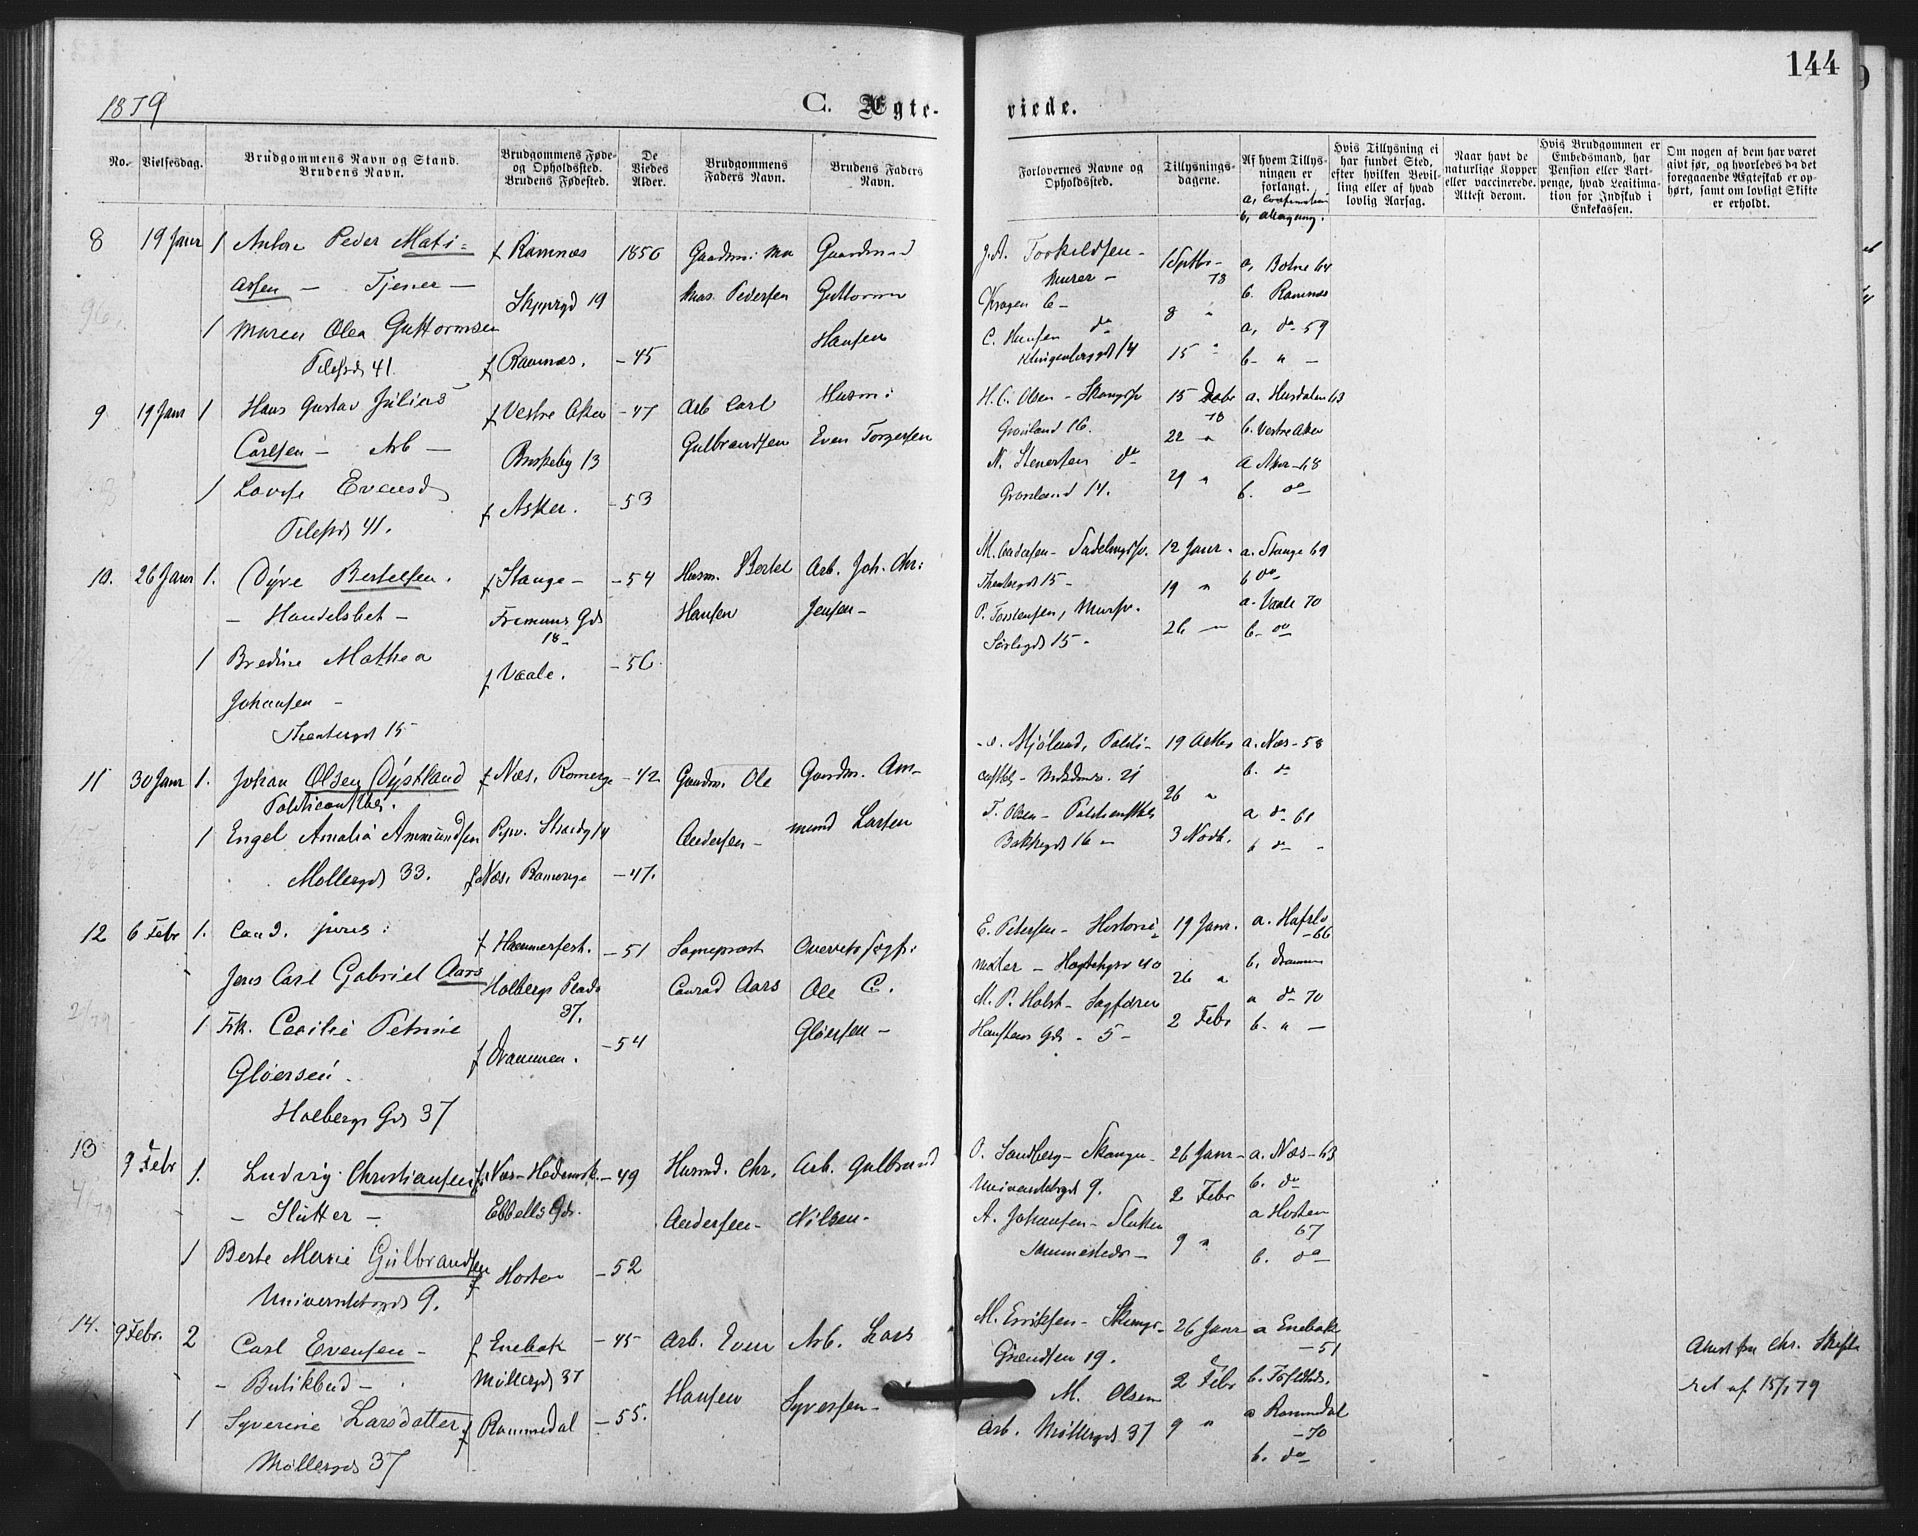 144
1879
C. Ægte-
viede.
No.
Vielsesdag.
Brudgommens Navn og Stand.
Brudens Navn.
Brudgommens Føde-
og Opholdssted.
Brudens Fødested.
De
Viedes
Alder.
Brudgommens
Faders Navn.
Brudens Faders
Navn.
Forlovernes Navne og
Opholdssted.
Tillysnings-
dagene.
Af hvem Tillys-
ningen er
forlangt.
a,
b,
Hvis Tillysning ei
har fundet Sted,
efter hvilken Bevil-
ling eller af hvad
lovlig Aarsag.
Naar havt de
naturlige Kopper
eller vaccinerede.
Attest derom.
Hvis Brudgommen er
Embedsmand, har
Pension eller Vart-
penge, hvad Legitima-
tion for Indskud i
Enkekassen.
Om nogen af dem har været
givt før, og hvorledes da det
foregaaende Ægteskab er op-
hørt, samt om lovligt Skifte
er erholdt.
8 19 Janr 1 Anton Peder Mati-
assen - Tjener -
f Ramnæs 1856
Skippergd 19
Pedersen
1 Maren Olea Guttormsen
41.
f Ramnæs. -45
Guttorm
Hansen
J. A. Torkildsen -
Murer -
Kragen 6 -
C. Hansen do
Klingenberggd 14
1 Septbr - 78
8 "
15 "
a, Botne 64
b. Ramnæs
a, do 59
b - " -
9 19 Janr 1 Hans Gustav Julius
Carlsen - Arb -
f Vestre Aker -47
Briskeby 13
Arb Carl
Gulbrandsen
Husm:
Even Torgersen
1 Lovise Evensd
41.
f Asker. -53
H. C. Olsen -
Grønland 16.
N. Stenersen do
Grønland 14.
15 Decbr 78
22 "
29 "
a. 63
b. Vestre Aker
a Aker - 68
b. do
10. 26 Janr 1. Dyre Bertelsen.
- Handelsbet -
f Stange - -54
18 -
Husm. Bertel
Hansen
Arb. Joh. Chr:
Jensen -
1 Bredine Mathea
Johansen -
Theatergd 15
f Vaale. -56.
M. Andersen -
Theatergd 15 -
P. Torstensen,
15 -
12 Janr -
19 "
26 -
a. Stange 69
b do
a. Vaale 70
b - do
11 30 Janr 1. Johan Olsen Dystland
Politiconstbl.
f Næs, Romerge -42
14
Gaardm. Ole
Andersen -
Gaardm. Am-
mund Larsen
1 Engel Amalia Ammundsen
Møllergd 33.
f Næs, Romerige -47.
Mjølund, Politi-
constbl - 21
T. Olsen - Politiconstbl
Bakkegd 16 -
19 Octbr
26 "
3 Novbr.
a. Næs - 58
b. do
a do 61
b do -
12 6 Febr 1. Cand. juris:
Jens Carl Gabriel Aars
f Hammerfest. -51
Holbergs Plads
37.
Sognepræst
Conrad Aars
Overretssagf:
Ole C.
Gløersen -
1 Frk. Cecilie Petrine
Gløersen -
Holbergs Gd 37
f Drammen. -54
E. Petersen - Historie-
maler - 40
M. P. Holst - Sagfører
Hansteens Gd - 5 -
19 Janr.
26 "
2 Febr
a. Hafslo
-66
b, Drammen
a do 70
b. " -
2/1 79
13 9 Febr 1. Ludvig Christiansen
- Slutter -
f Næs - Hedemrk. -49
Ebbells Gd.
Husmd. Chr.
Andersen -
Arb. Gulbrand
Nilsen -
1 Berte Marie Gulbrandsen
Universitetsgd 9.
f Horten -52
O. Sandberg -
Universitetsgd 9.
A. Johansen -
Sammesteds -
26 Janr -
2 Febr
9 "
a. Næs - 63
b. do
a Horten
67
b. do
4/1 79
14. 9 Febr. 2 Carl Evensen -
- Butikbud -
f Enebak -45
Møllergd 37
Arb. Even
Hansen
Arb. Lars
Syversen -
1 Syverine Larsdatter
Møllergd 37
f Rommedal -55.
M. Eriksen -
Grændsen 19.
M. Olsen
Arb. Møllergd 37
26 Janr
2 Febr
9 "
a Enebak
-51
b.
a Romedal
-70
b. do
Attest fra Chr. Skifte
ret af 15/1 79